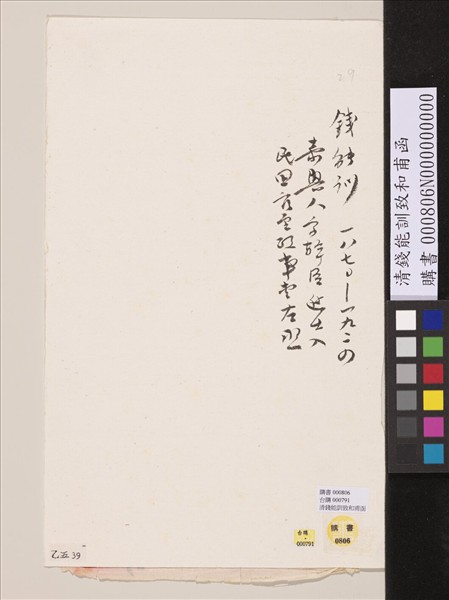 39
錢能訓 一八七〇—一九二四
嘉興人字幹臣進士入
民國官至政事堂左丞
清錢能訓致和甫函
購書 000806N000000000
購書 000806
台購 000791
清錢能訓致和甫函
台購
000791
購書
0806
乙.五 39